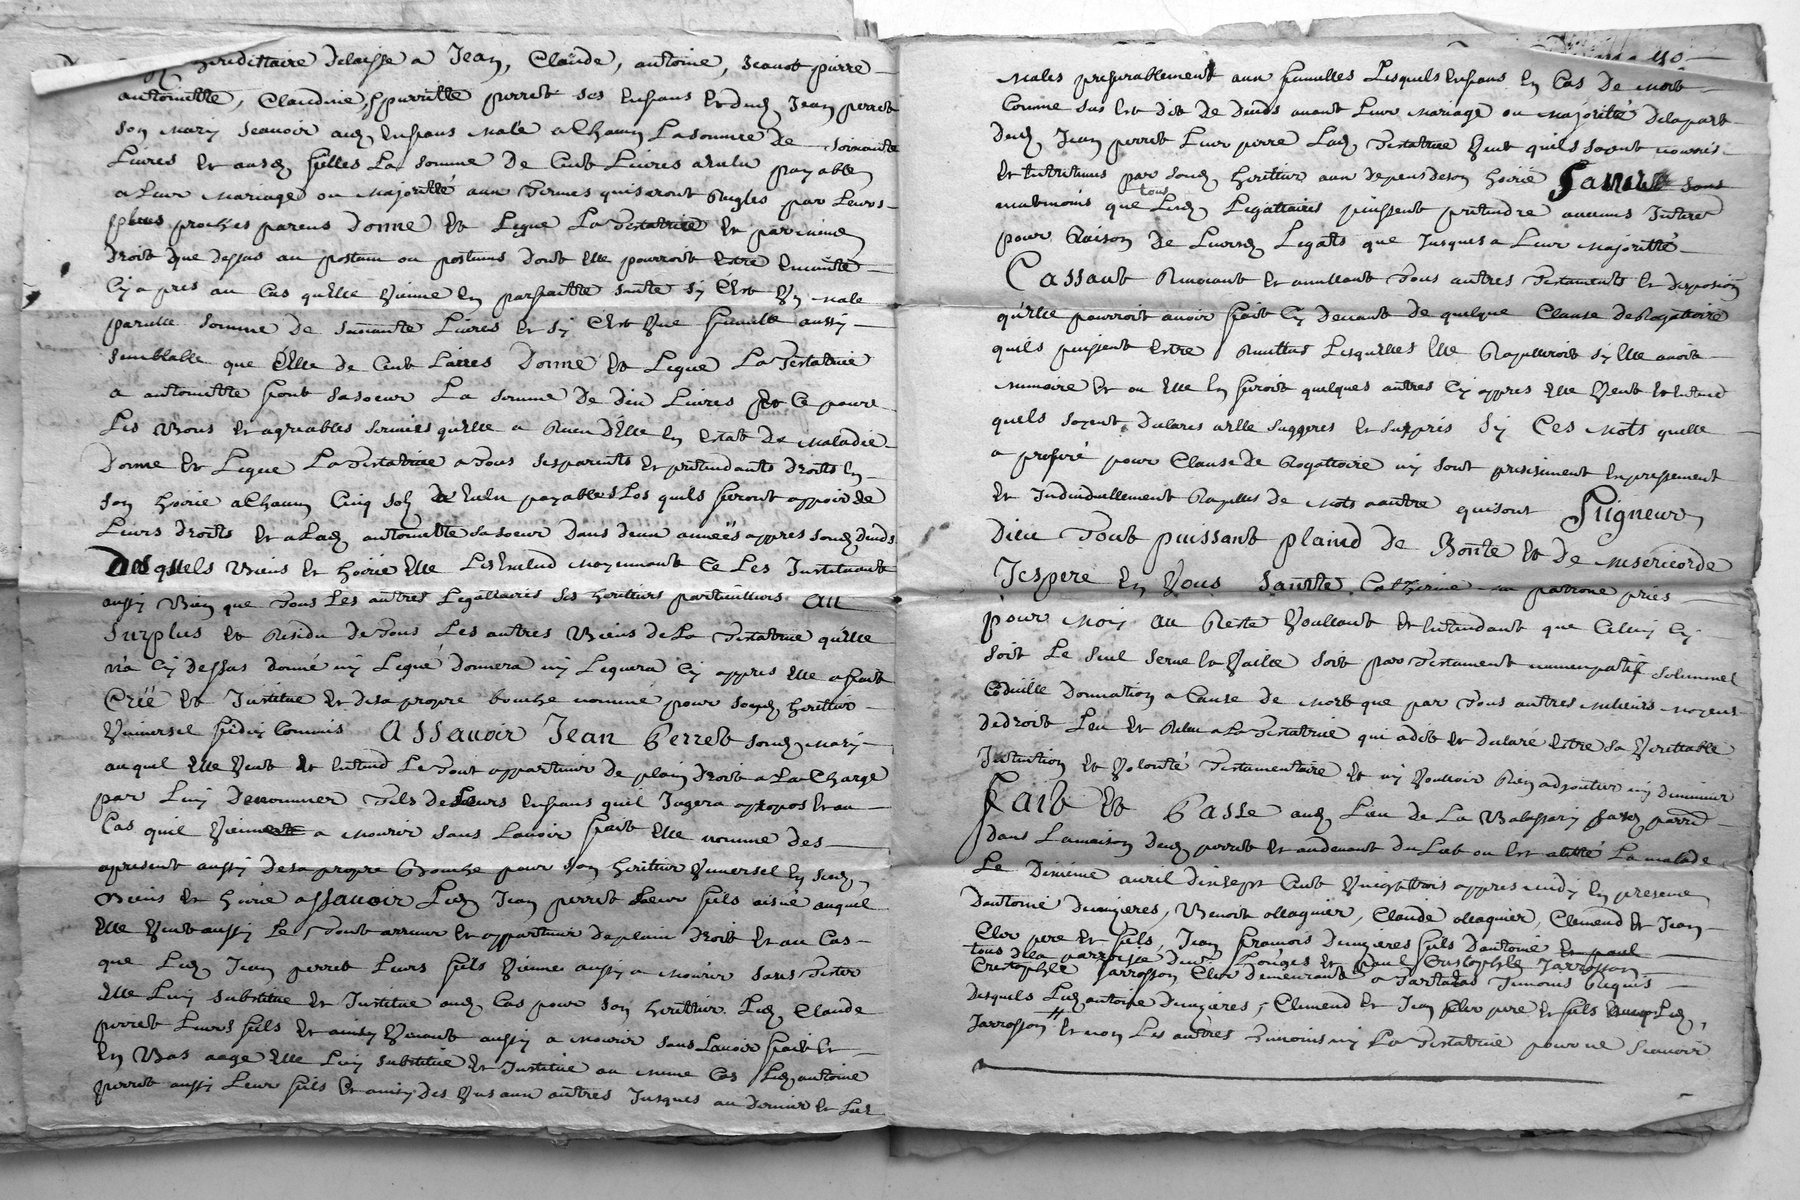 heredittaire delaisse a Jean, Claude, antoine, Jeanot pierre
antoinette, Claudine, pierrette perret ses Enfans Et dud. Jean perret
son Mary scavoir aux Enfans Male a Chacun La somme de soixante
Livres Et ausd. filles La somme de Cent Livres payable
a Leur Mariage ou Majoritté aux Termes quiseront Reiglés par Leurs
plus proches parens Donne Et Legue La Testatrice Et par mesme
Droit que dessus au postum ou postumes dont Elle pourroit Estre Enceinte
Cy apres au Cas quElle Vienne En parfaitte sante sy C'est Un Male
pareille somme de soixante Livres Et sy C'est Une femelle aussy
semblable que Celle de Cent Livres Donne Et Legue La Testatrice
a antoinette sa soeur La somme De dix Livres Et Ce pour
Les Bons Et agreables services quElle a Receu d'Elle En Estat De Maladie
Donne Et Legue La Testatrice a Tous ses parents Et prétendants Droits En
son hoirie a Chacun Cinq sols payables Los quils feront apparoir de
Leurs Droits Et a Lad. antoinette sa soeur Dans deux années appres sond. deceds
Desquels Biens Et hoirie Elle Les Exclud Moyennant Ce Les Instituant
aussy Bien que Tous Les autres Legattaires ses heritiers particulliers Au
Surplus Et Residu de Tous Les autres Biens de La Testatrice quElle
n'a Cy dessus donné ny Legué donnera ny Leguera Cy appres Elle a fait
Créé Et Institue Et de sa propre bouche nommé pour sond. heritier
Universel fidey Commis Assavoir Jean Perret sond. Mary
auquel Elle Veut Et Entend Le Tout appartenir De plain Droit a La Charge
par Luy De nommer Tels de Leurs Enfans quil Jugera a propos Et au
Cas quil Vienne a Mourir sans L'avoir fait Elle nomme des
apresent aussy de sa propre Bouche pour son heritier Universel En sesd.
Biens Et hoirie assavoir Led. Jean perret Leur fils aisné auquel
Elle Veut aussy Le Tout arriver Et appartenir de plain Droit Et au Cas
que Led. Jean perret Leurs fils Vienne aussy a Mourir sans Tester
Elle Luy substitue Et Institue aud. Cas pour son heritier Led. Claude
perret Leurs fils Et ainsy Venant aussy a Mourir sans L'avoir fait Et
En Bas aage Elle Luy substitue Et Institue au Mesme Cas Led. antoine
perret aussy Leur fils Et ainsy des Uns aux autres Jusques au Dernier Et Les
Males preferablement aux femelles Lesquels Enfans En Cas De Mort
Comme sus Est dit De Deceds avant Leur Mariage ou Majorité de la part
Dud. Jean perret Leur perre Lad. Testatrice Veut quils soyent nourris
Et Entretenus par sond. heritier aux depens de son hoirie Sans
neatmoins que tous Lesd. Legattaires puissent prétendre aucuns Interet
pour Raison De Leursd. Legats que Jusques a Leur Majoritté
Cassant Revocant Et anullant Tous autres Testaments Et disposion
quElle pourroit avoir fait Cy devant de quelque Clause deRogattoire
quils puissent Estre Revettus Lesquelles Elle Rappelleroit sy Elle avoit
memoire Et ou Elle En feroit quelques autres Cy appres Elle Veut Et Entend
quels soyent Declares Et surpris sy Ces Mots quelle
a proferé pour Clause deRogattoire ny sont precisement Expressement
Et Individuellement Rapellés de Mots a autre qui sont Seigneur
Dieu Tout puissant plaind De Bonté Et De Misericorde
Jespere En Vous Saintte Catherine ma patrone priés
pour Moy Au Reste Voullant Et Entendant que Celuy Cy
soit Le seul serve Et Vaille soit par Testament nuncupatif solemnel
Codicille Donnation a Cause de Mort que par Tous autres Milieurs Moyens
De droit Leu Et Releu a La Testatrice qui a dit Et declaré Estre sa Veritable
Intention Et Volonté Testamentaire Et ny Vouloir Rien adjoutter ny diminuer
Fait Et Passe aud. Lieu de La Balassary
Dans La maison dud. perret Et audevant du Lict ou Est La malade
Le Dixieme avril dixsept Cent Vingt trois appres midy En presence
D'antoine Dumzieres, Benoit Maguier, Claude Maguier, Clemend Et Jean
Cler pere Et fils, Jean francois Dumzieres fils D'antoine Et paul
tous dela parroisse de Et paul Cristophle Jarrosson
Cristophle Jarrosson Cler demeurant a Tartaras Temoins Requis
Desquels Led. antoine Dumzieres, Clemend Et Jean Cler pere Et fils Led.
Jarrosson Et non Les autres Temoins ny La Testatrice pour ne Scavoir